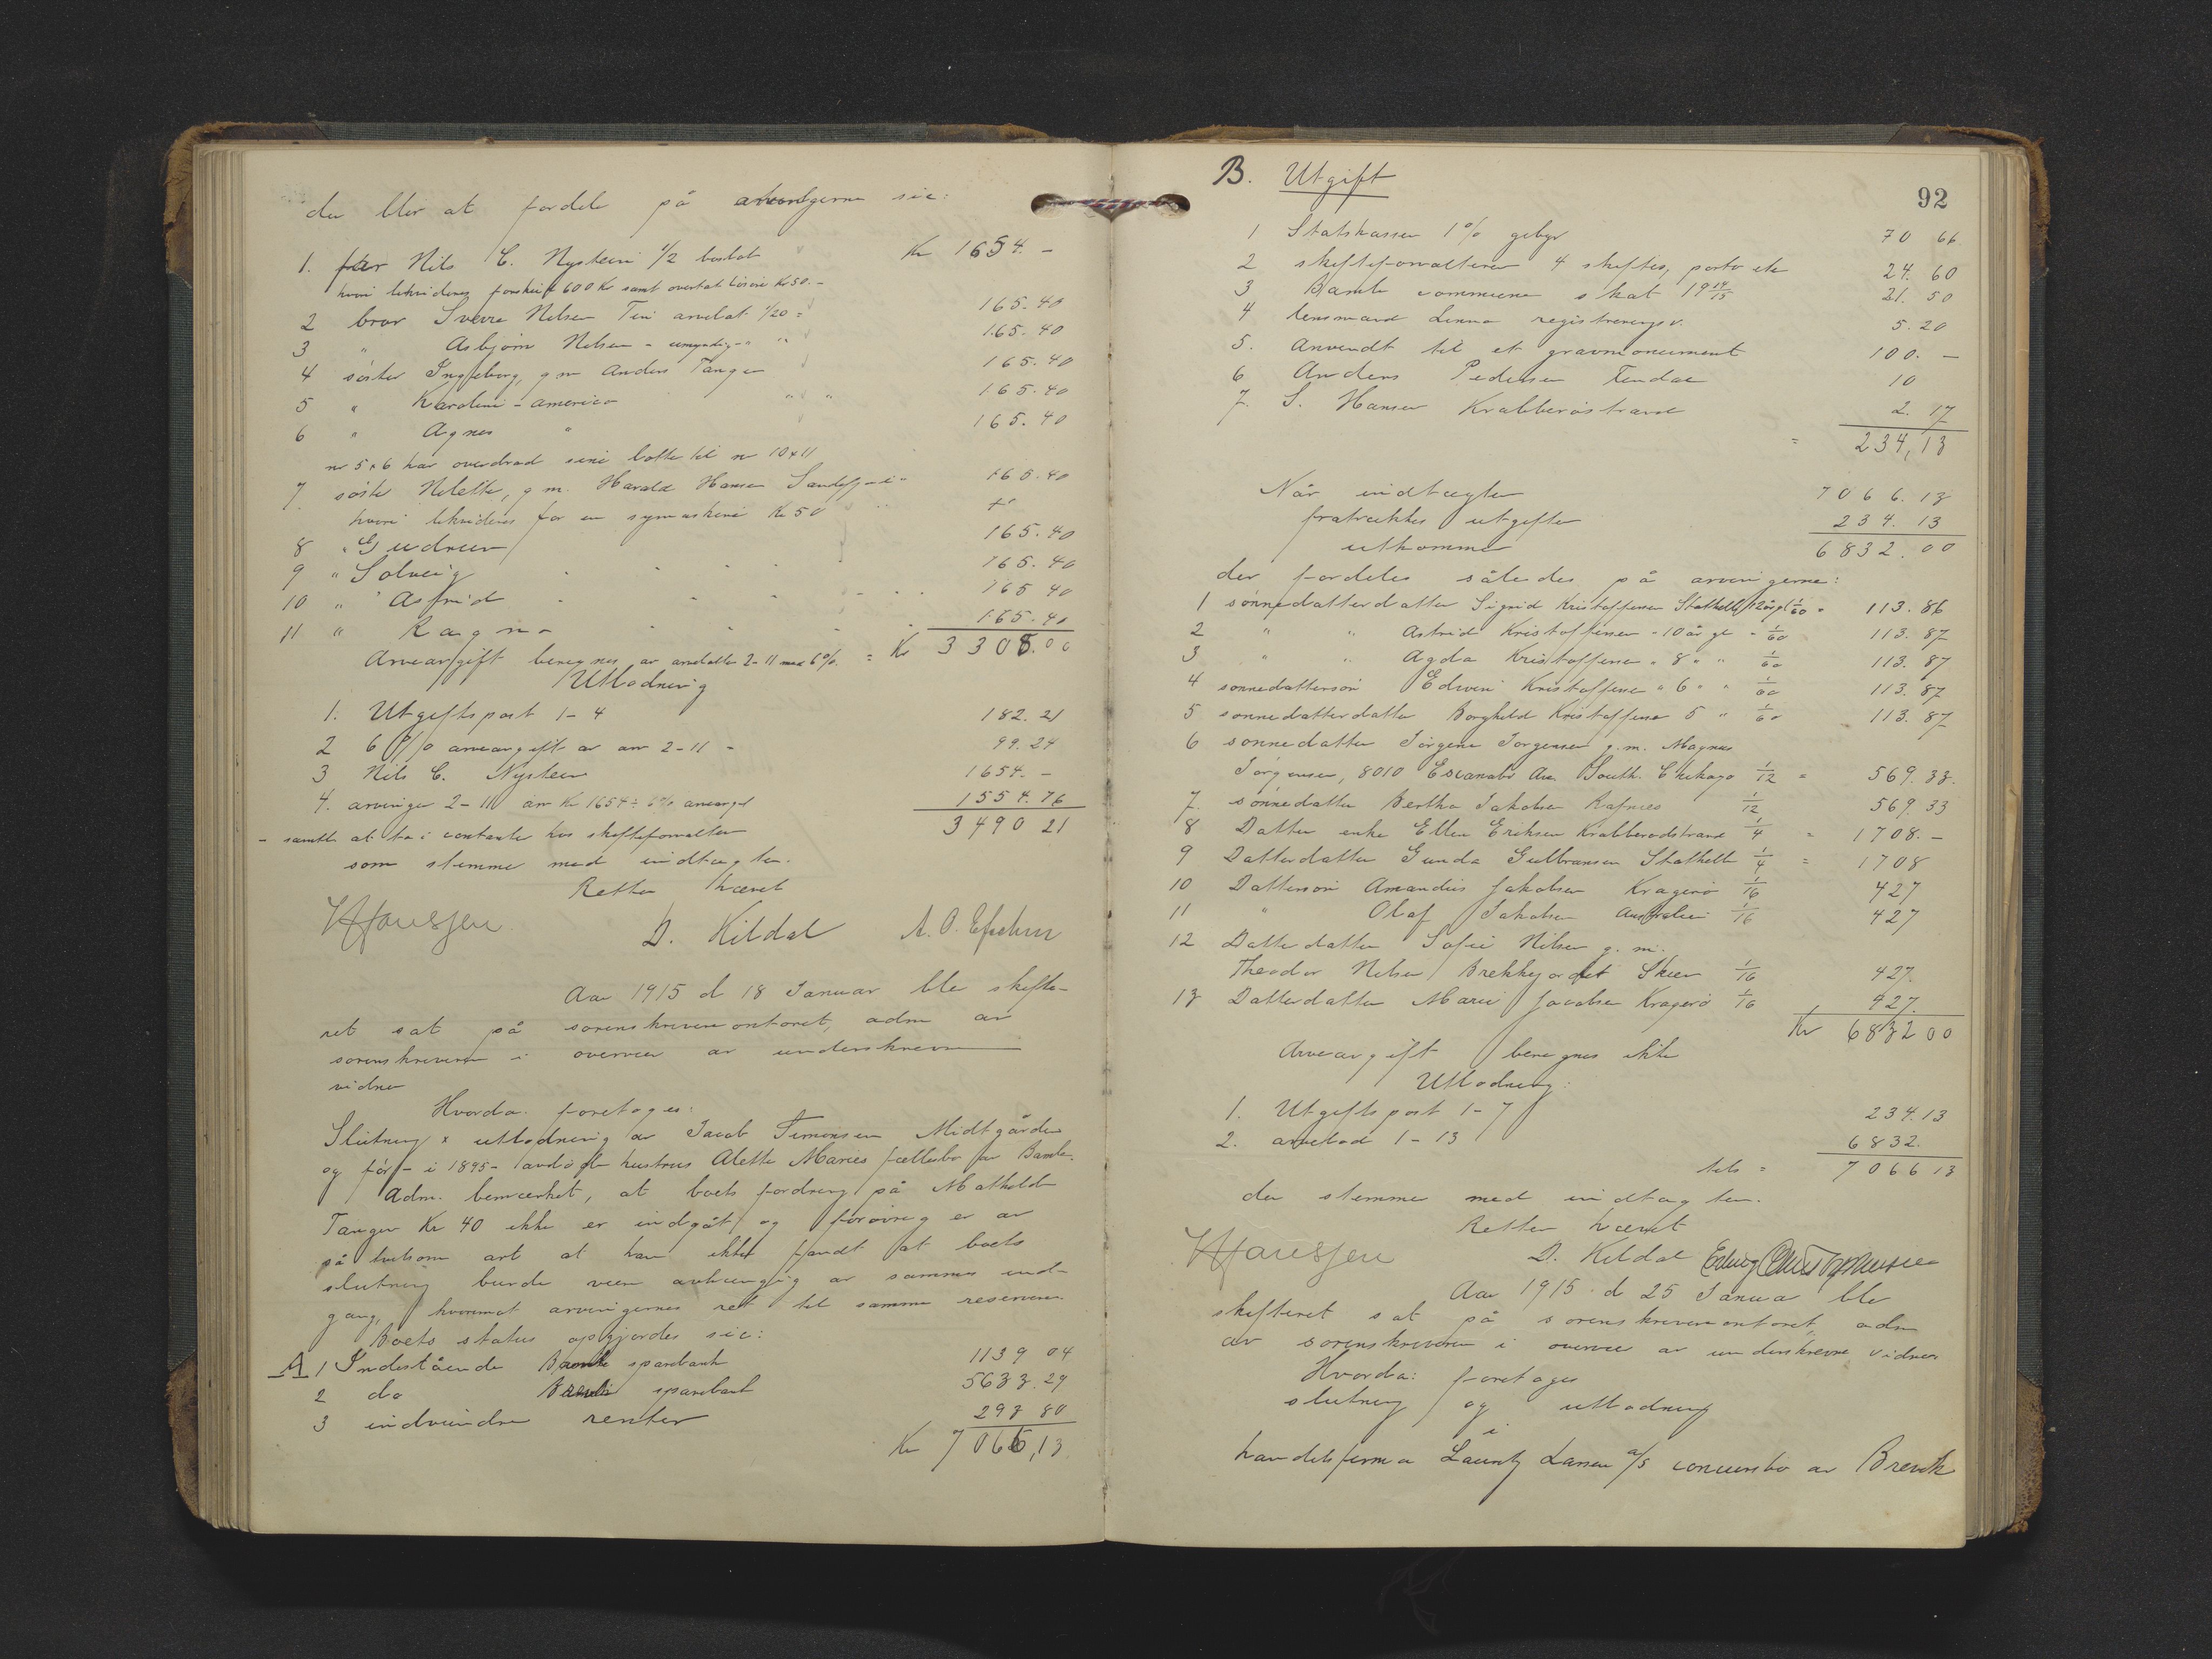 der blir at fordele på arvingerne sic:
1. far Nils C. Nystein 1/2 boslod Kr 1654.-
hvori likvideres forskud 600 Kr samt overtat løsøre Kr 50.-
2 bror Sverre Nilsen Tin arvelod 1/20 = 165.40
3 " Asbjørn Nilsen - umyndig - " " 165.40
4 søster Ingeborg, g m Anders Tangen 165.40
5 " Karoline - America " " 165.40
6 " Agnes " 165.40
nr 5 & 6 har overdrad sine lotter til nr 10 & 11
7 søster Nilette, g m. Harald Hansen 165.40
hvori likvideres for en symaskine Kr 50
8 " Gudrun 165.40
9 " Solveig 165.40
10 " Asfrid 165 40
11 " Ragna 165.40
Arveavgift beregnes av arvelotter 2-11 med 6%. = Kr 3308.00
Utlodning
1. Utgiftspost 1-4 182.21
2 6% arveavgift av arv 2-11 - 99.24
3 Nils C. Nystein 1654.-
4. arvinger 2-11 arv Kr 1654 ÷ 6% arveavg 1554.76
- samtli at ta i contanter hos skifteforvalter 3490 21
som stemmer med indtægten.
Retten hævet
D. Kildal
Aar 1915 d 18 Januar ble skifte-
ret sat på sorenskriverkontoret, adm av
sorenskriveren i overvær av underskrevne
vidner
Hvorda. foretoges:
Slutning & utlodning av Jacob Simonsen Midtgården
og før - i 1895 - avdøde hustrus Alette Maries fællesbo av Bamle.
Adm. bemærket, at boets fordring på Mathilde
Tangen Kr 40 ikke er indgåt og forøvrig er av
på tvilsom art at han ikke fandt at boets
slutning burde være avhængig av sammes ind-
gang, hvorimot arvingernes ret til samme reserveres.
Boets status opgjordes sic:
A 1 Indestående Bamle sparebank 1139 04
2 do Brevik sparebank 5633.29
3 indvundne renter 293 80
Kr 7066,13
B. Utgift
92
1 Statskassen 1% gebyr 70 66
2 skifteforvalteren 4 skiftes, porto etc 24. 60
3 Bamle commune skat 19 14/15 21. 50
4 lensmand Linna registreringsv. 5. 20
5. Anvendt til et gravmonument 100. -
6 Anders Pedersen Findal 10
7. S. Hansen Krabberøstrand 2. 17
= 234,13
Når indtægten 7066.13
fratrækkes utgifter 234.13
utkommer 6832.00
der fordeles således på arvingerne:
1 sønnedatterdatter Sigrid Kristoffersen Stathelle 12 år gl 1/60 = 113.86
2 " " Astrid Kristoffersen - 10 år gl - 1/60 113.87
3 " " Agda Kristoffersen " 8 " " 1/60 113.87
4 sønnedattersøn Edvin Kristoffersen " 6 " " 1/60 113.87
5 sønnedatterdatter Borghild Kristoffersen 5 " 1/60 113.87
6 sønnedatter Jørgine Jørgensen g.m. Magnus
Jørgensen, 8010 Escanaba Av. South Chikago 1/12 = 569.33.
7. sønnedatter Bertha Jakobsen Rafnes 1/12 569.33
8 Datter enke Ellen Eriksen Krabberødstrand 1/4 = 1708.-
9 Datterdatter Gunda Gulbransen Stathelle 1/4 = 1708
10 Dattersøn Amandus Jakobsen Kragerø 1/16 427
11 " Olaf Jakobsen Australien 1/16 427
12 Datterdatter Sofie Nilsen g. m.
Theodor Nilsen Brekkejordet Skien 1/16 427.
13 Datterdatter Marie Jacobsen Kragerø 1/16 427.
Kr 6832 00
Arveavgift beregnes ikke
Utlodning:
1. Utgiftspost 1-7 234.13
2. arvelod 1-13 6832.
tils = 7066 13
der stemmer med indtægten.
Retten hævet
D. Kildal
Aar 1915 d 25 Januar ble
skifteret sat på sorenskriverkontoret, adm
av sorenskriveren i overvær av underskrevne vidner
Hvorda: foretoges
slutning og utlodning
i
handelsfirma Lauritz Larsen A/S concursbo av Brevik